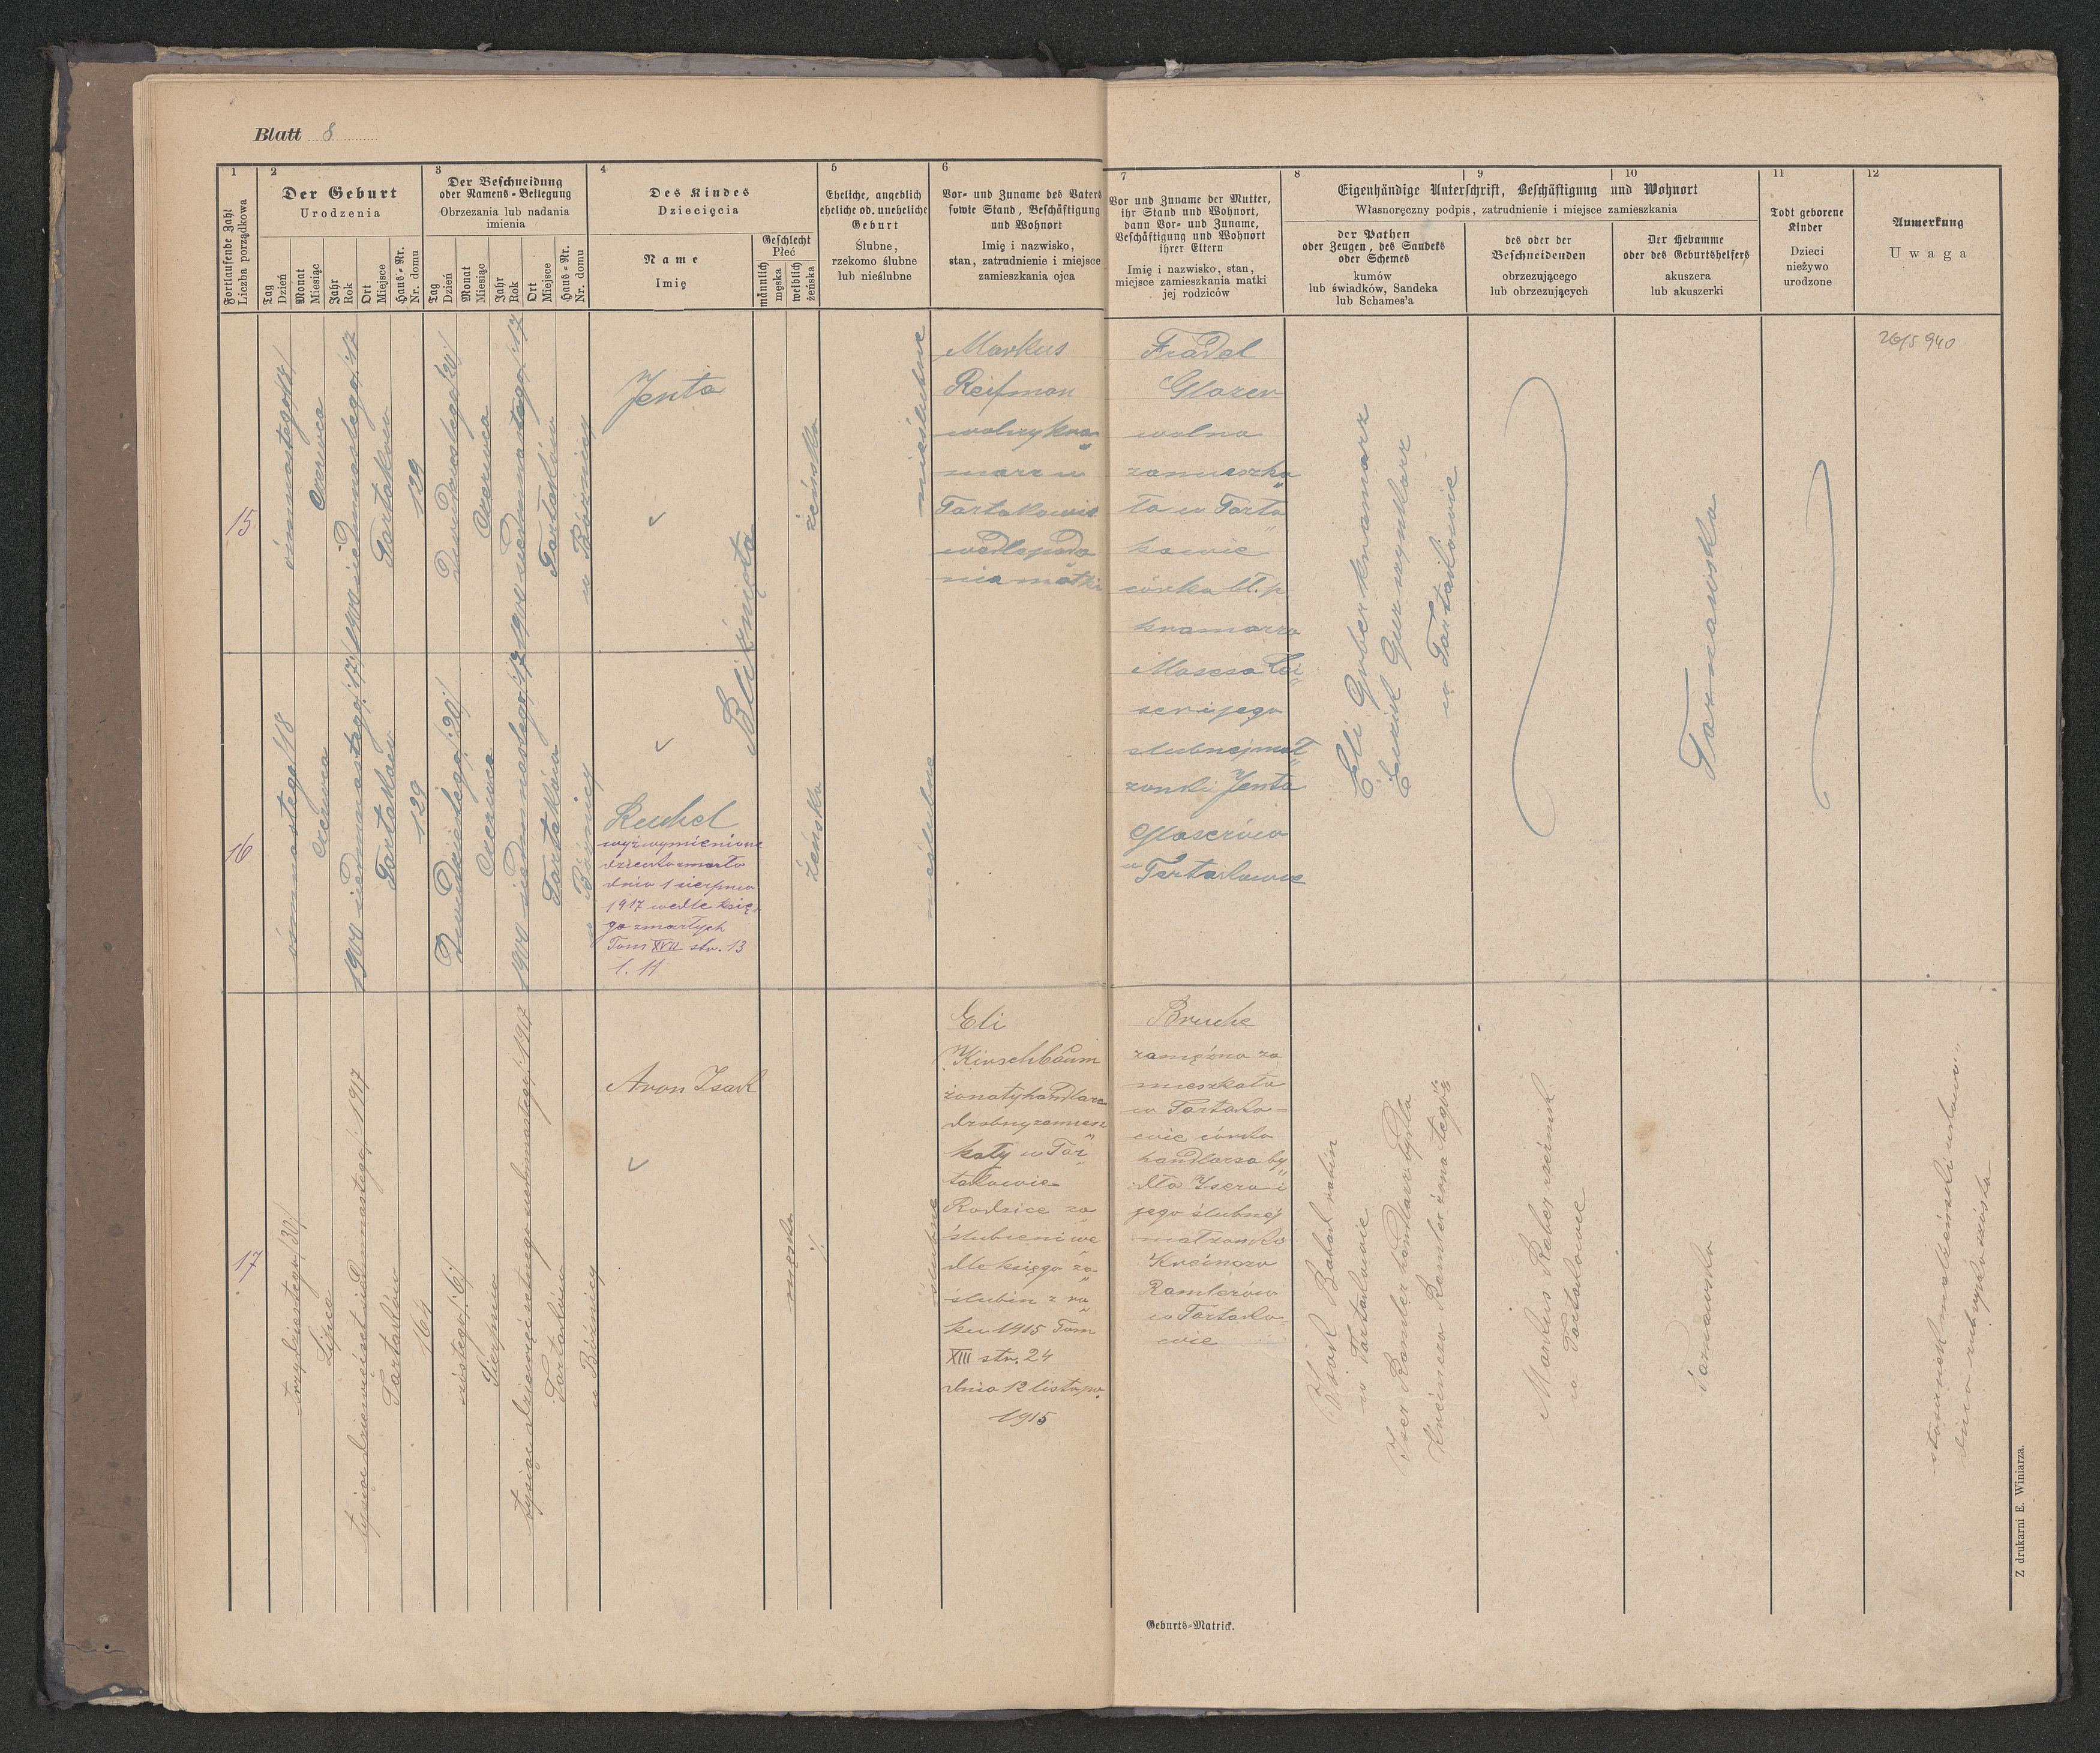 Blatt 8
1
Fortlaufende Zahl
Liczba porządkowa
2
Der Geburt
Urodzenia
Tag
Dzień
Monat
Miesiąc
Jahr
Rok
Ort
Miejsce
Haus-Nr.
Nr. domu
3
Der Beschneidung
oder Namens-Beilegung
Obrzezania lub nadania
imienia
Tag
Dzień
Monat
Miesiąc
Jahr
Rok
Ort
Miejsce
Haus-Nr.
Nr. domu
4
Des Kindes
Dziecięcia
Name
Imię
Geschlecht
Płeć
männlich
męska
weiblich
żeńska
5
Eheliche, angeblich
eheliche od. uneheliche
Geburt
Ślubne,
rzekomo ślubne
lub nieślubne
6
Vor- und Zuname des Vaters
sowie Stand, Beschäftigung
und Wohnort
Imię i nazwisko,
stan, zatrudnienie i miejsce
zamieszkania ojca
7
Vor und Zuname der Mutter,
ihr Stand und Wohnort,
dann Vor- und Zuname,
Beschäftigung und Wohnort
ihrer Eltern
Imię i nazwisko, stan,
miejsce zamieszkania matki
jej rodziców
8
9
10
Eigenhändige Unterschrift, Beschäftigung und Wohnort
Własnoręczny podpis, zatrudnienie i miejsce zamieszkania
der Pathen
oder Zeugen, des Sandeks
oder Schemes
kumów
lub świadków, Sandeka
lub Schames'a
des oder der
Beschneidenden
obrzezującego
lub obrzezujących
Der Hebamme
oder des Geburtshelfers
akuszera
lub akuszerki
11
Todt geborene
Kinder
Dzieci
nieżywo
urodzone
12
Anmerkung
Uwaga
15
ósmnastego/18/
czerwca
1900 siedmnastego/17
Tartaków
129
Dwudziestego/20/
czerwca
1900 siedmnastego/17
Tartaków
w Bóżnicy
Jenta
Bliźnięta
żeńska
nieślubne
Markus
Reifman
wolny kra
marz w
Tartakowie
wedle poda
nia matki
Fradel
Glaser
wolna
zamieszka
ła w Tarta
kowie
córka bł. p
kramarza
Mosesa Lei
sera i jego
ślubnej mał
żonki Jenta
Glaserów
w Tartakowie
Eli Gruber kramarz
w Tartakowie
Tarnawska
26/5 940
16
ósmnastego/18
czerwca
1900 siedmnastego/17/
Tartaków
129
Dwudziestego/20/
czerwca
1900 siedmnastego/17
Tartaków
w Bóżnicy
Ruchel
wyż wymienione
dziecko zmarło
dnia 1 sierpnia
1917 wedle księ
ga zmarłych
Tom XVII str. 13
l. 11
żeńska
nieślubne
17
trzydziestego/30/
Lipca
tysiąc dziewięćset siedmnastego/1917
Tartaków
164
szóstego/6/
Sierpnia
tysiąc dziewięćsetnego siedmnastego/1917
Tartaków
w Bóżnicy
Aron Isak
męska
ślubne
Eli
Kirschbaum
żonaty handlarz
drobny zamiesz
kały w Tar
takowie
Rodzice za
ślubieni we
dle księga za
ślubin z ro
ku 1915 Tom
XIII str. 24
dnia 12 listopa.
1915
Bruche
zamężna za
mieszkała
w Tartako=
wie córka
handlarza by
dła Isera i
jego ślubnej
małżonki
Kreincza
Ramlerów
w Tartako=
wie
Izak Babad rabin
w Tartakowie
Iser Ramler handlarz bydła
Kreincza Ramler żona tegoż
Markus Raber rzeźnik
w Tartakowie
Tarnawska
stosunek małżeński ustawa
Geburts-Matrick.
Z drukarni E. Winiarza.